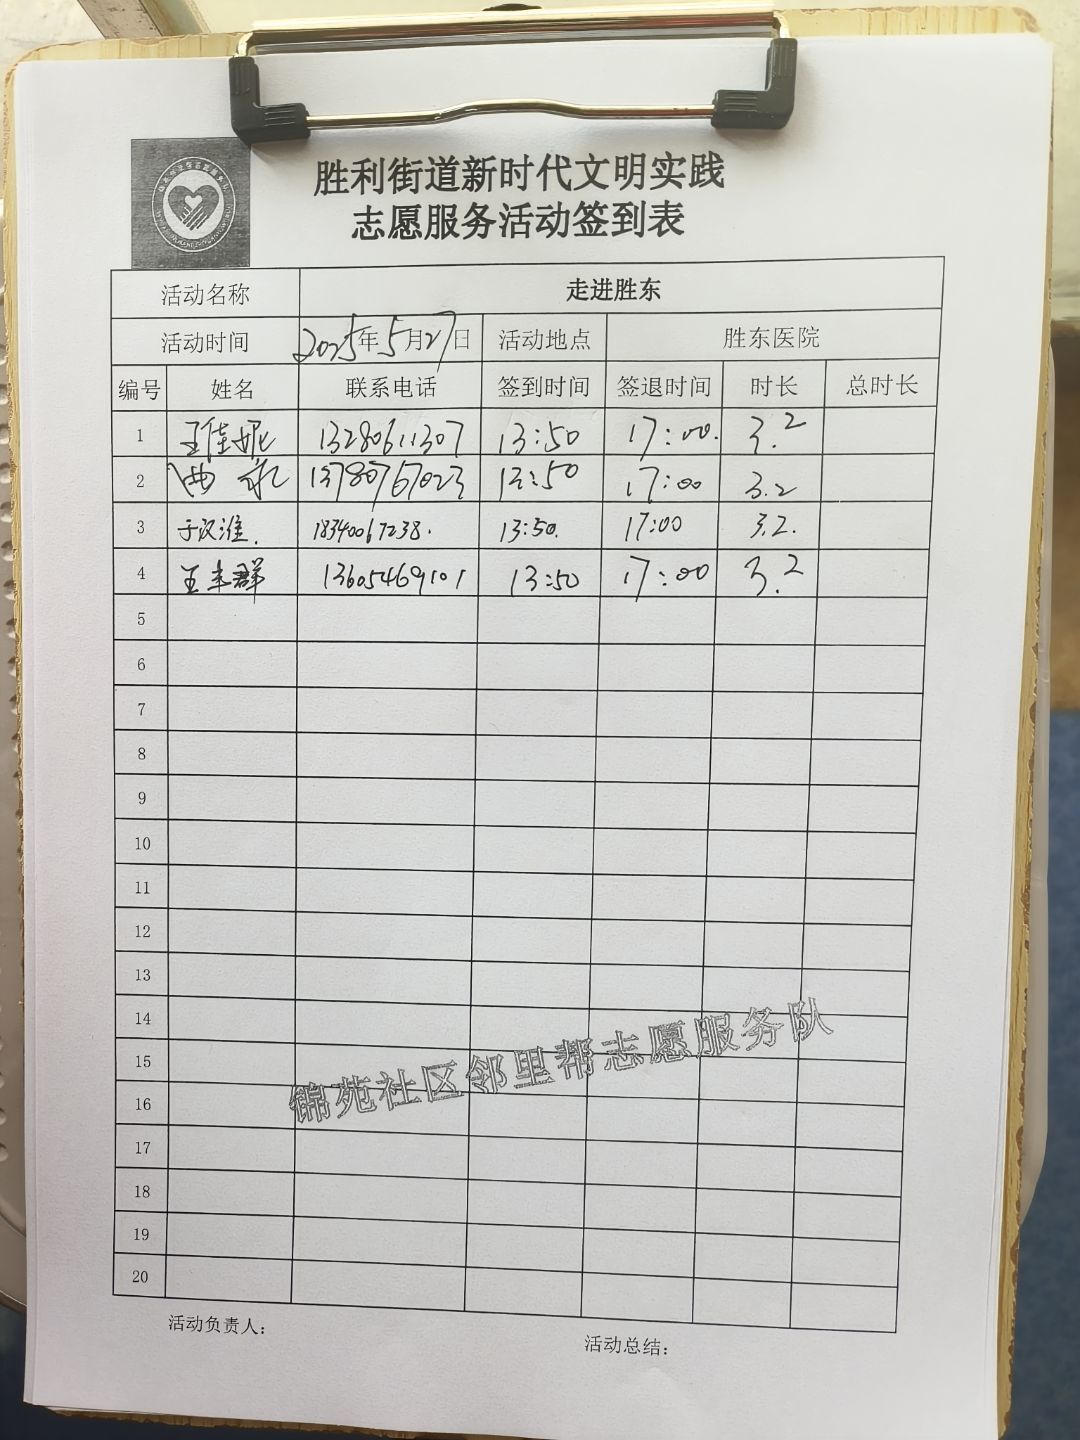 胜利街道新时代文明实践
志愿服务活动签到表
活动名称 走进胜东
活动时间 2025年5月27日 活动地点 胜东医院
编号 姓名 联系电话 签到时间 签退时间 时长 总时长
1 王佳妮 13280611307 13:50 17:00. 3.2
2 13780767023 13:50 17:00 3.2
3 于汉淮. 18340067238. 13:50. 17:00 3.2.
4 王丰群 13605469101 13:50 17:00 3.2
5
6
7
8
9
10
11
12
13
14
15
16
17
18
19
20
锦苑社区邻里帮志愿服务队
活动负责人：
活动总结：